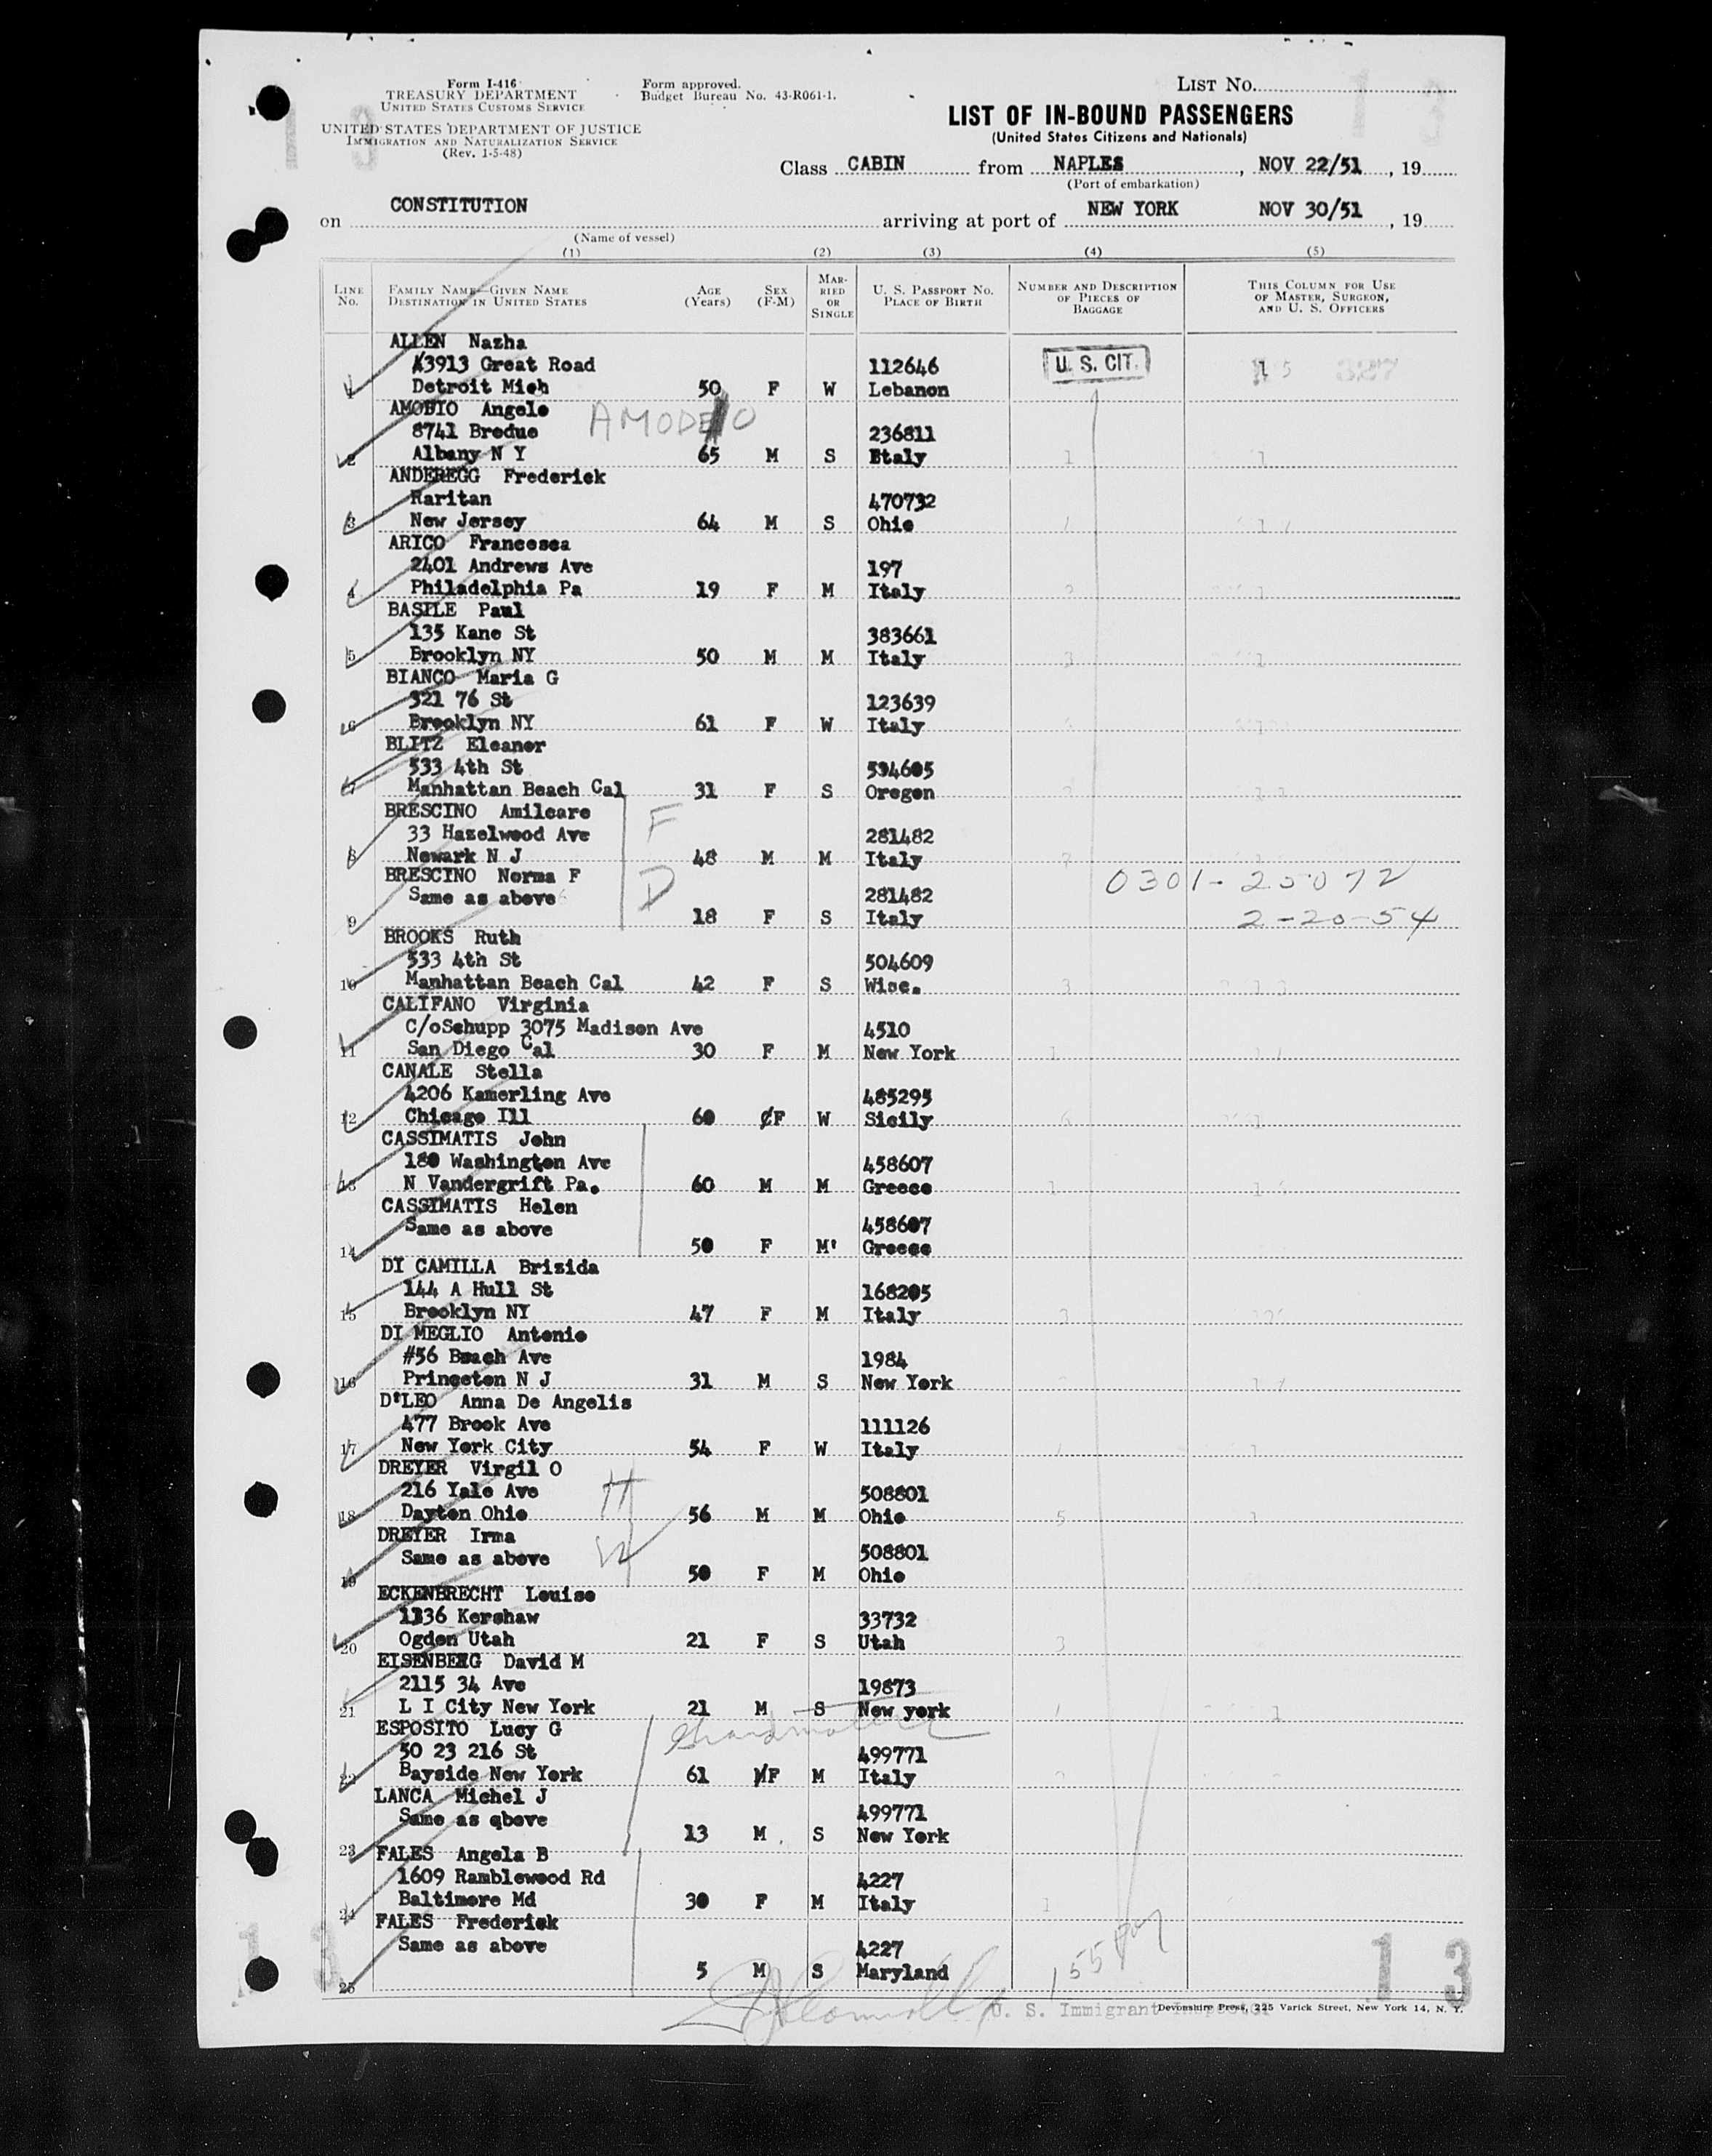 Form I-416
TREASURY DEPARTMENT
UNITED STATES CUSTOMS SERVICE
UNITED STATES DEPARTMENT OF JUSTICE
IMMIGRATION AND NATURALIZATION SERVICE
(Rev. 1-5-48)
Form approved.
Budget Bureau No. 43-R061-1.
LIST NO.
13
LIST OF IN-BOUND PASSENGERS
(United States Citizens and Nationals)
Class CABIN from NAPLES, NOV 22/51, 19
(Port of embarkation)
on CONSTITUTION arriving at port of NEW YORK NOV 30/51, 19
(Name of vessel)
(1) (2) (3) (4) (5)
LINE NO. FAMILY NAME—GIVEN NAME DESTINATION IN UNITED STATES AGE (Years) SEX (F-M) MARRIED OR SINGLE U. S. PASSPORT NO. PLACE OF BIRTH NUMBER AND DESCRIPTION OF PIECES OF BAGGAGE THIS COLUMN FOR USE OF MASTER, SURGEON, AND U. S. OFFICERS
ALLEN Nazha
3913 Great Road 112646 U. S. CIT. 327
1 Detroit Mich 50 F W Lebanon
AMODIO Angelo AMODEO
8741 Bredue 236811
2 Albany N Y 65 M S Etaly 1 1
ANDEREGG Frederick
Raritan 470732
3 New Jersey 64 M S Ohio 1 1
ARICO Francesca
2401 Andrews Ave 197
4 Philadelphia Pa 19 F M Italy 1
BASILE Paul
135 Kane St 383661
5 Brooklyn NY 50 M M Italy 3 1
BIANCO Maria G
321 76 St 123639
6 Brooklyn NY 61 F W Italy
BLITZ Eleanor
533 4th St 504605
7 Manhattan Beach Cal 31 F S Oregon
BRESCINO Amilcare F
33 Hazelwood Ave 281482
8 Newark N J 48 M M Italy 7
BRESCINO Norma F D 0301-25072
Same as above 281482
9 18 F S Italy 2-20-54
BROOKS Ruth
533 4th St 504609
10 Manhattan Beach Cal 42 F S Wisc. 3
CALIFANO Virginia
C/oSchupp 3075 Madison Ave 4510
11 San Diego Cal 30 F M New York 1
CANALE Stella
4206 Kamerling Ave 485295
12 Chicago Ill 60 F W Sicily 6 1
CASSIMATIS John
180 Washington Ave 458607
13 N Vandergrift Pa. 60 M M Greece 1
CASSIMATIS Helen
Same as above 458607
14 50 F M' Greece
DI CAMILLA Brizida
144 A Hull St 168205
15 Brooklyn NY 47 F M Italy 3
DI MEGLIO Antonio
#56 Beach Ave 1984
16 Princeton N J 31 M S New York
D'LEO Anna De Angelis
477 Brook Ave 111126
17 New York City 54 F W Italy 1
DREYER Virgil O H
216 Yale Ave 508801
18 Dayton Ohio 56 M M Ohio 5 1
DREYER Irma
Same as above W 508801
19 50 F M Ohio
ECKENBRECHT Louise
1336 Kershaw 33732
20 Ogden Utah 21 F S Utah 3
EISENBERG David M
2115 34 Ave 19873
21 L I City New York 21 M S New york 1
ESPOSITO Lucy G Grandmother
50 23 216 St 499771
22 Bayside New York 61 F M Italy
LANCA Michel J
Same as qbove 499771
23 13 M S New York
FALES Angela B
1609 Ramblewood Rd 4227
24 Baltimore Md 30 F M Italy 1
FALES Frederick
Same as above 4227
25 5 M S Maryland
13 13
U. S. Immigrant Inspector
Devonshire Press, 225 Varick Street, New York 14, N. Y.